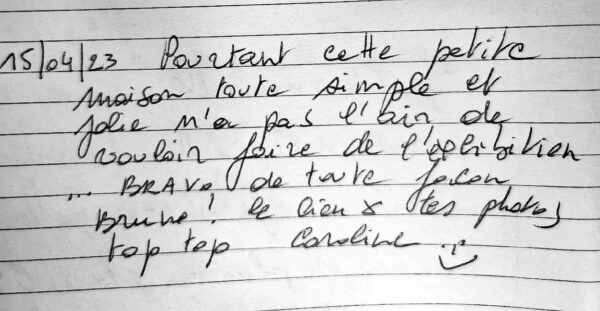 15/04/23 Pourtant cette petite
maison toute simple et
jolie n'a pas l'air de
vouloir faire de l'exhibition
... BRAVO de toute façon
Bruno! le lieu & tes photos
top top Caroline :-)